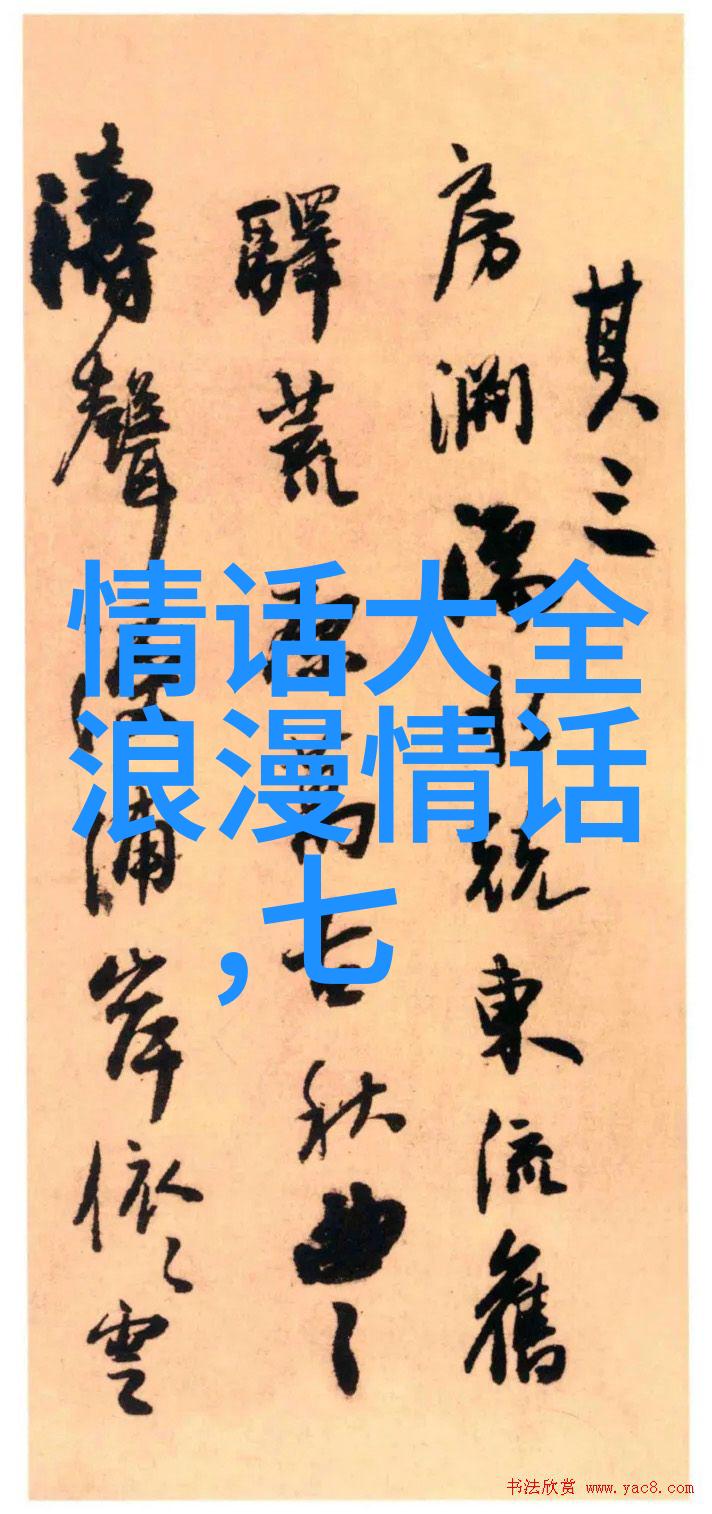 情话大全
浪漫情话
,七
其三
房 水 東流舊
驛荒 古秋曲〻
濤聲 浦岸依〻雲
书法欣赏 www.yac8.com